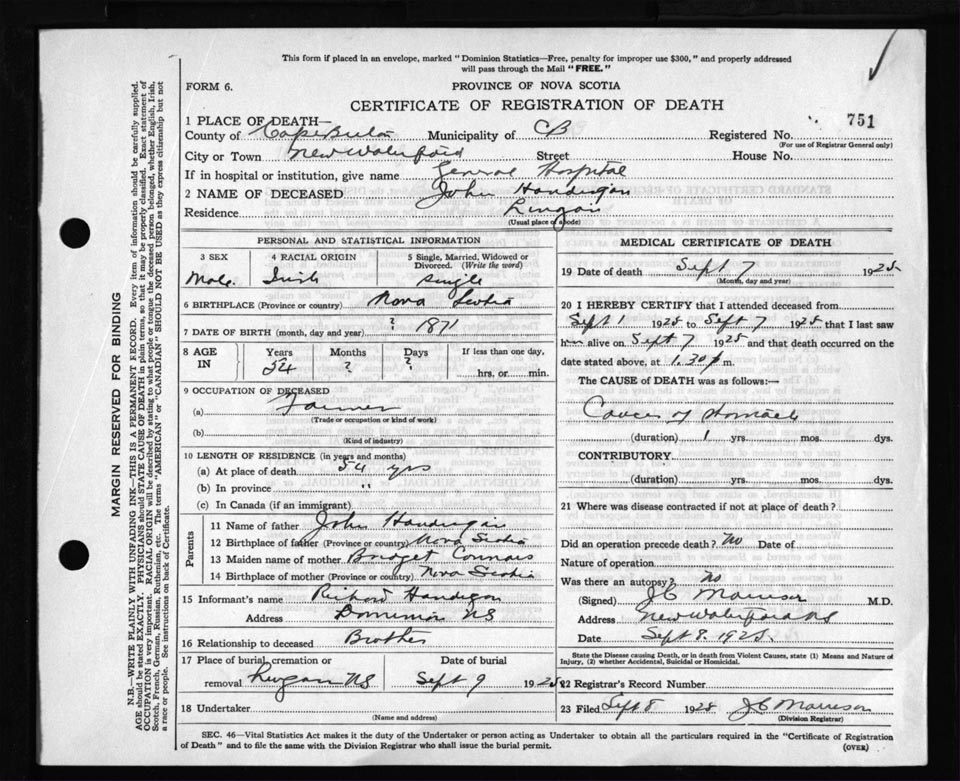 This form if placed in an envelope, marked "Dominion Statistics—Free, penalty for improper use $300," and properly addressed
will pass through the Mail "FREE."
FORM 6. PROVINCE OF NOVA SCOTIA
CERTIFICATE OF REGISTRATION OF DEATH
1 PLACE OF DEATH—
County of Cape Breton Municipality of CB Registered No. 751
(For use of Registrar General only)
City or Town New Waterford Street House No.
If in hospital or institution, give name General Hospital
2 NAME OF DECEASED John Handigan
Residence Lingan
(Usual place of abode)
PERSONAL AND STATISTICAL INFORMATION
3 SEX 4 RACIAL ORIGIN 5 Single, Married, Widowed or Divorced. (Write the word)
Male. Irish Single
6 BIRTHPLACE (Province or country) Nova Scotia
7 DATE OF BIRTH (month, day and year) ? 1871
8 AGE IN Years Months Days If less than one day,
54 ? ? hrs. or min.
9 OCCUPATION OF DECEASED
(a) Farmer
(Trade or occupation or kind of work)
(b)
(Kind of industry)
10 LENGTH OF RESIDENCE (in years and months)
(a) At place of death 54 yrs
(b) In province "
(c) In Canada (if an immigrant)
Parents
11 Name of father John Handigan
12 Birthplace of father (Province or country) Nova Scotia
13 Maiden name of mother Bridget Connors
14 Birthplace of mother (Province or country) Nova Scotia
15 Informant's name Richard Handigan
Address Dominion NS
16 Relationship to deceased Brother
17 Place of burial, cremation or removal Lingan NS Date of burial Sept 9 1925
18 Undertaker
(Name and address)
MEDICAL CERTIFICATE OF DEATH
19 Date of death Sept 7 1925
(Month, day and year)
20 I HEREBY CERTIFY that I attended deceased from
Sept 1 1925 to Sept 7 1925 that I last saw
him alive on Sept 7 1925 and that death occurred on the
date stated above, at 1.30 p m.
The CAUSE OF DEATH was as follows:—
Cancer of stomach
(duration) 1 yrs. mos. dys.
CONTRIBUTORY
(duration) yrs. mos. dys.
21 Where was disease contracted if not at place of death?
Did an operation precede death? No Date of
Nature of operation
Was there an autopsy? No
(Signed) JC Morrison M.D.
Address New Waterford NS
Date Sept 8. 1925.
State the Disease causing Death, or in death from Violent Causes, state (1) Means and Nature of
Injury, (2) whether Accidental, Suicidal or Homicidal.
22 Registrar's Record Number
23 Filed Sept 8 1925 JC Morrison
(Division Registrar)
SEC. 46—Vital Statistics Act makes it the duty of the Undertaker or person acting as Undertaker to obtain all the particulars required in the "Certificate of Registration
of Death" and to file the same with the Division Registrar who shall issue the burial permit. (OVER)
MARGIN RESERVED FOR BINDING
N.B.—WRITE PLAINLY WITH UNFADING INK—THIS IS A PERMANENT RECORD. Every item of information should be carefully supplied.
AGE should be stated EXACTLY. PHYSICIANS should STATE CAUSE OF DEATH in plain terms, so that it may be properly classified. Exact statement of
OCCUPATION is very important. RACIAL ORIGIN will be described by stating to what people or tongue the deceased person belonged, whether English, Irish,
Scotch, French, German, Russian, Ruthenian, etc. The terms "AMERICAN" or "CANADIAN" SHOULD NOT BE USED as they express citizenship but not
a race or people. See instructions on back of Certificate.